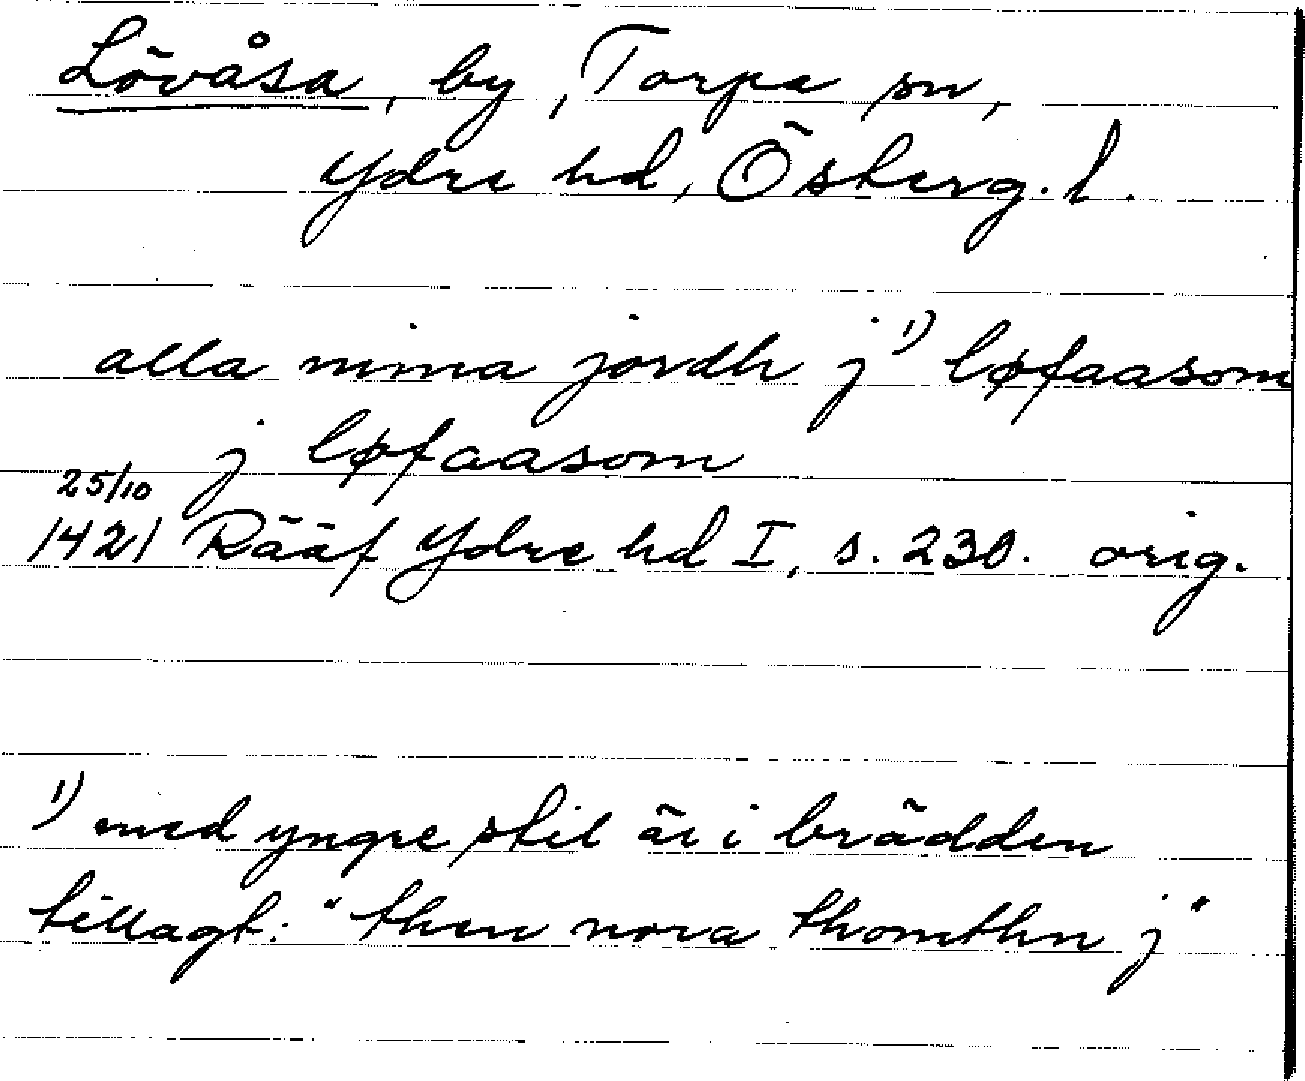 Lövåsa, by, Torpa sn,
Ydre hd, Österg. l.
alla minna jordh j ¹) løfaasom
j løfaasom
25/10
1421 Rääf Ydre hd I, s. 230. orig.
¹) med yngre stil är i brädden
tillagt: "then nora thomthn j"